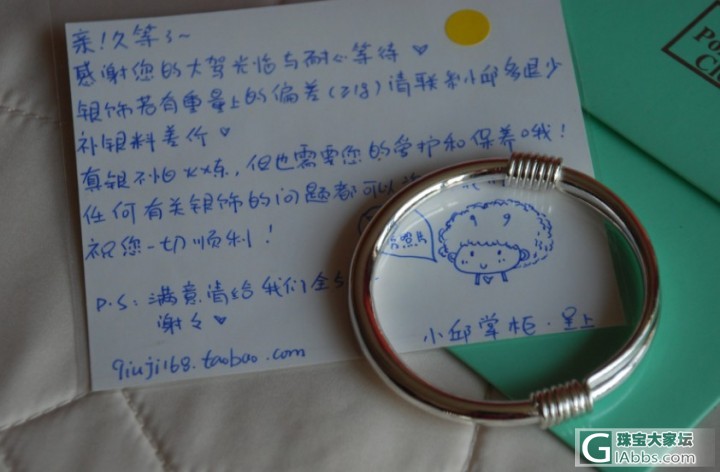 亲!久等了~
感谢您的大驾光临与耐心等待♥
银饰若有重量上的偏差(≥1g)请联系小邱多退少
补银料差价♥
真银不怕火炼,但也需要您的爱护和保养哦!
任何有关银饰的问题都可以
祝您一切顺利!
P.S:满意请给我们全5
谢谢♥
小邱掌柜·呈上
qiuji168.taobao.com
Po
Ch
珠宝大家坛
GIAbbs.com